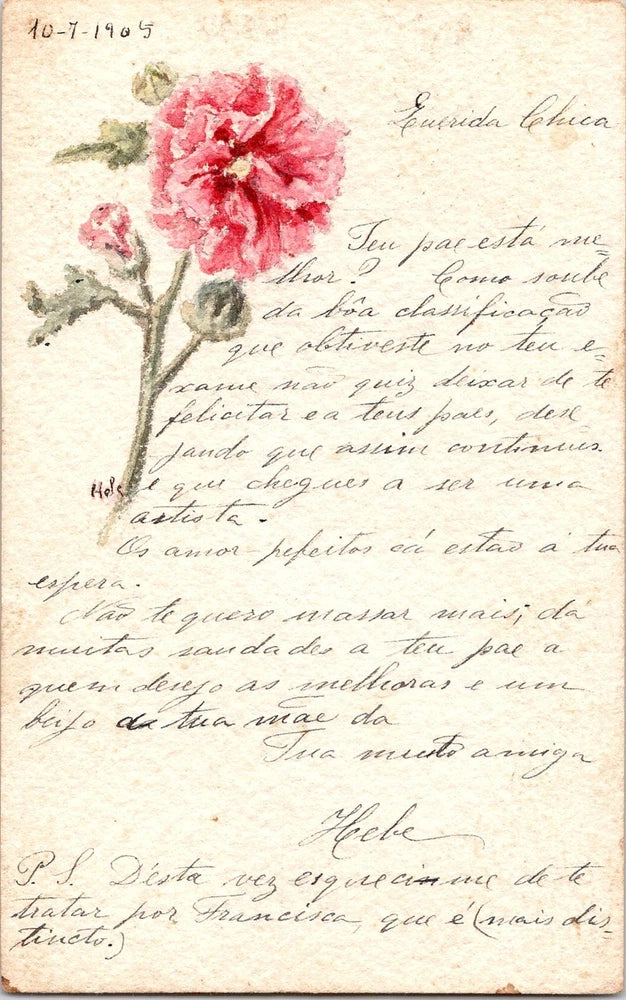 10-7-1905
Querida Chica
Teu pae está me=
lhor? Como soube
da bôa classificação
que obtiveste no teu e=
xame não quiz deixar de te
felicitar e a teus paes, dese
jando que assim continues
e que chegues a ser uma
Hebe
artista.
Os amor pefeitos cá estão á tua
espera.
Não te quero massar mais; dá
muitas saudades a teu pae a
quem desejo as melhoras e um
beijo a tua mãe da
Tua muito amiga
Hebe
P. S. Désta vez esqueci me de te
tratar por Francisca, que é (mais dis=
tincto.)